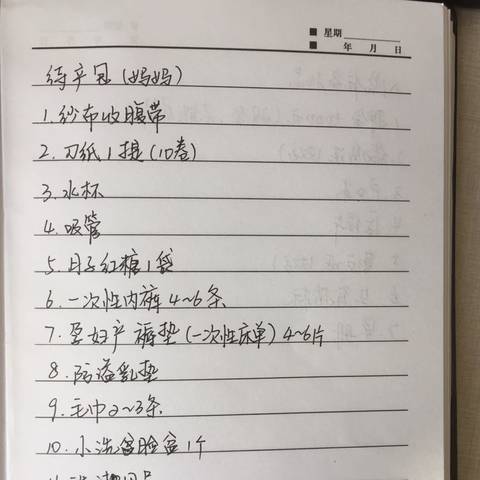 星期
年 月 日
待产包(妈妈)
1.纱布收腹带
2.刀纸1提(10卷)
3.水杯
4.吸管
5.月子红糖1袋
6.一次性内裤4~6条
7.孕妇产褥垫(一次性床单)4~6片
8.防溢乳垫
9.毛巾2~3条
10.小洗盆脸盆1个